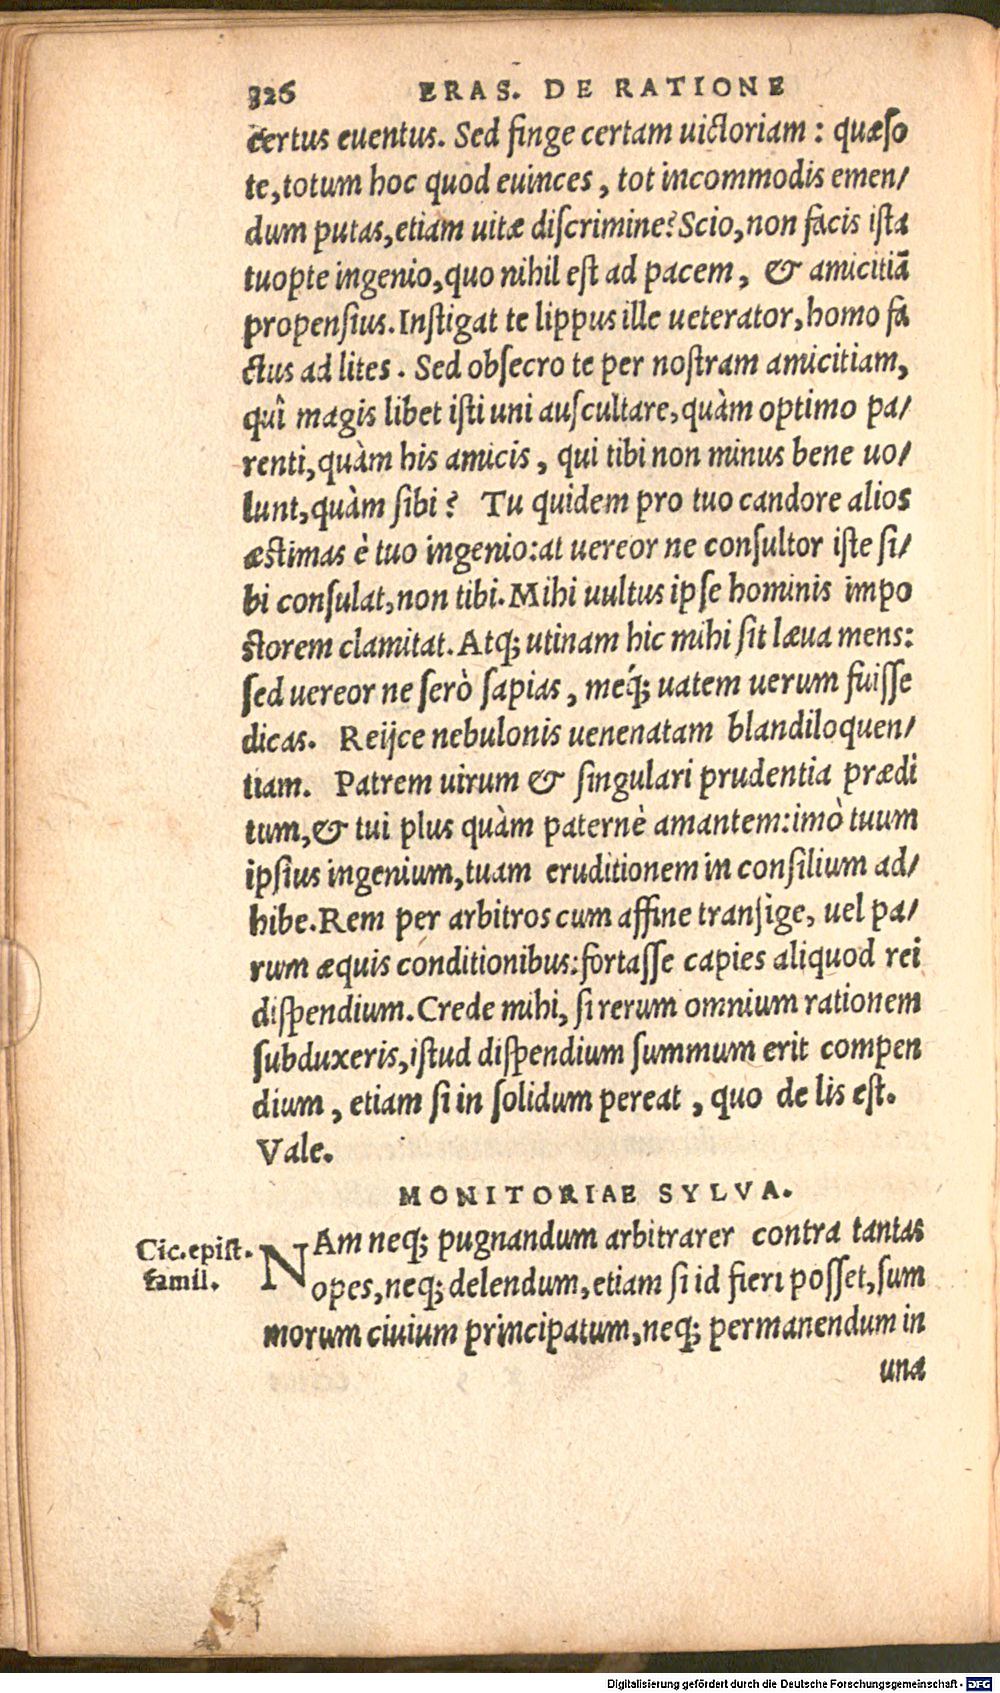 326 ERAS. DE RATIONE
certus euentus. Sed finge certam uictoriam : quæso
te, totum hoc quod euinces, tot incommodis emen/
dum putas, etiam uitæ discrimine? Scio, non facis ista
tuopte ingenio, quo nihil est ad pacem, & amicitiā
propensius. Instigat te lippus ille ueterator, homo fa
ctus ad lites. Sed obsecro te per nostram amicitiam,
quî magis libet isti uni auscultare, quàm optimo pa/
renti, quàm his amicis, qui tibi non minus bene uo/
lunt, quàm sibi? Tu quidem pro tuo candore alios
æstimas è tuo ingenio: at uereor ne consultor iste si/
bi consulat, non tibi. Mihi uultus ipse hominis impo
storem clamitat. Atq; utinam hic mihi sit læua mens:
sed uereor ne serò sapias, meq́; uatem uerum fuisse
dicas. Reijce nebulonis uenenatam blandiloquen/
tiam. Patrem uirum & singulari prudentia prædi
tum, & tui plus quàm paternè amantem: imò tuum
ipsius ingenium, tuam eruditionem in consilium ad/
hibe. Rem per arbitros cum affine transige, uel pa/
rum æquis conditionibus: fortasse capies aliquod rei
dispendium. Crede mihi, si rerum omnium rationem
subduxeris, istud dispendium summum erit compen
dium, etiam si in solidum pereat, quo de lis est.
Vale.
MONITORIAE SYLVA.
Cic. epist.
famil.
NAm neq; pugnandum arbitrarer contra tantas
opes, neq; delendum, etiam si id fieri posset, sum
morum ciuium principatum, neq; permanendum in
una
Digitalisierung gefördert durch die Deutsche Forschungsgemeinschaft - DFG